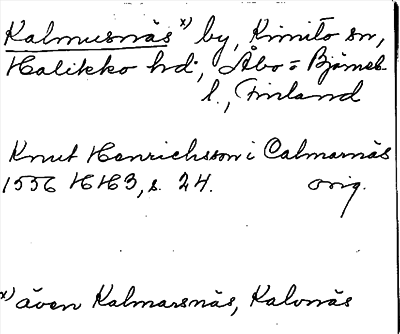 Kalmusnäs x) by, Kimito sn,
Halikko hd, Åbo = Björneb.
l., Finland
Knut Henrichsson i Calmarnäs
1556 HH3, s. 24. orig.
x) även Kalmarsnäs, Kalvnäs